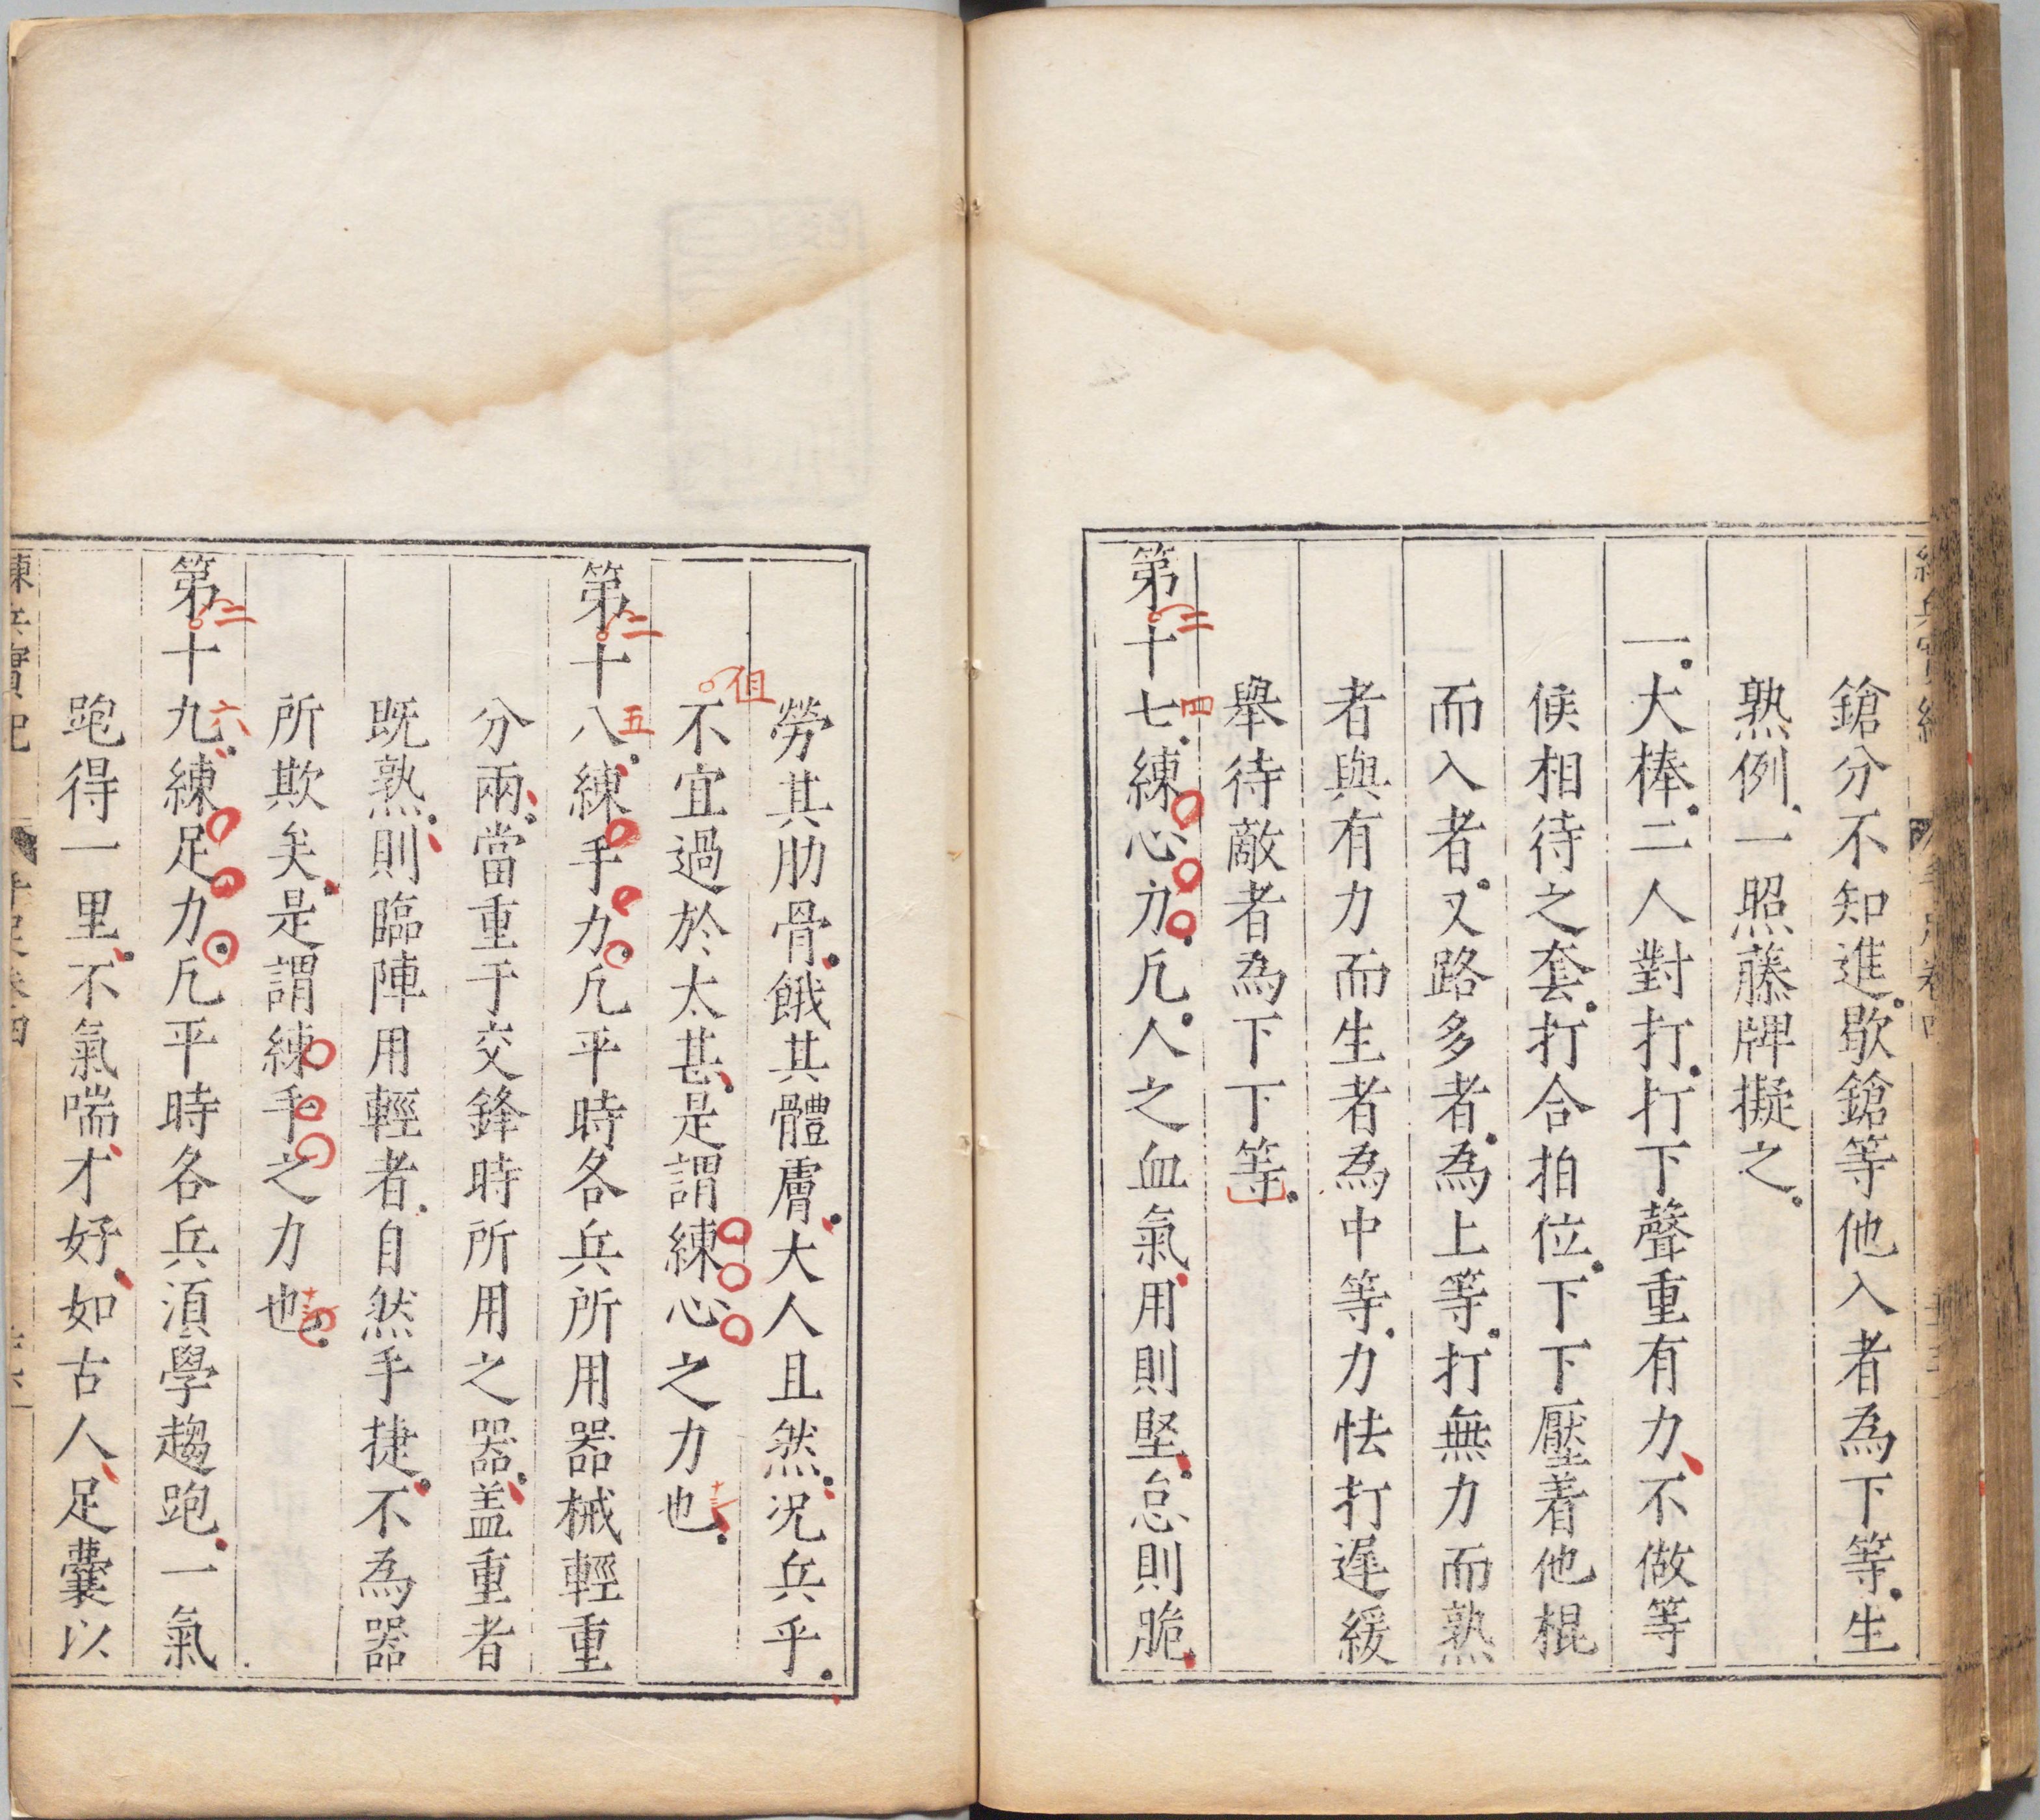 鎗分不知進歇鎗等他入者為下等生
熟例一照藤牌擬之
一大棒二人對打打下聲重有力不做等
候相待之套打合拍位下下壓着他棍
而入者又路多者為上等打無力而熟
者與有力而生者為中等力怯打遲緩
舉待敵者為下下等
第十七練心力凡人之血氣用則堅怠則脆
勞其肋骨餓其體膚大人且然况兵乎
不宜過於太甚是謂練心之力也
第十八練手力凡平時各兵所用器械輕重
分兩當重于交鋒時所用之器盖重者
既熟則臨陣用輕者自然手捷不為器
所欺矣是謂練手之力也
第十九練足力凡平時各兵湏學趨跑一氣
跑得一里不氣喘才好如古人足囊以
二
四
但
二
五
二
六